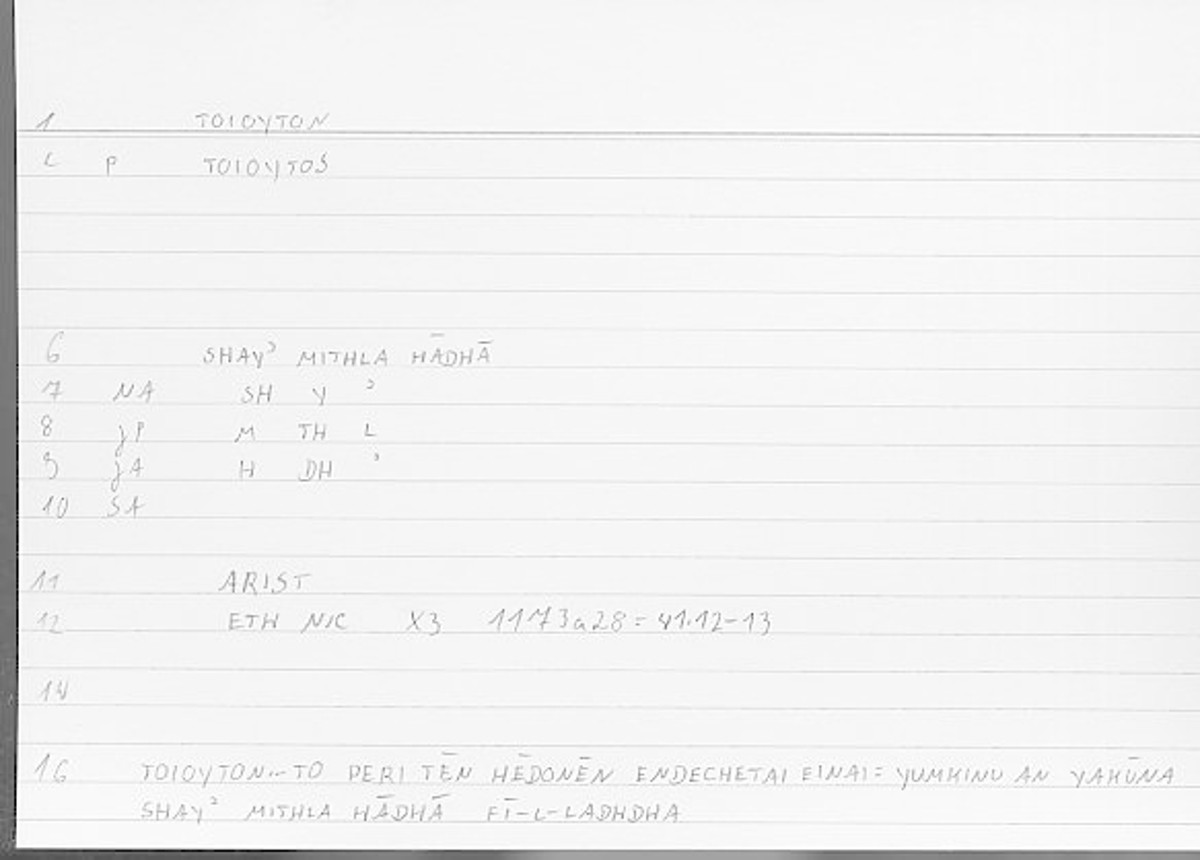 1 TOIOYTON
2 P TOIOYTOS
6 SHAYʾ MITHLA HĀDHĀ
7 NA SH Y ʾ
8 jP M TH L
9 jA H DH ʾ
10 SA
11 ARIST
12 ETH NIC X3 1173a28 = 41.12-13
14
16 TOIOYTON...TO PERI TĒN HĒDONĒN ENDECHETAI EINAI = YUMKINU AN YAKŪNA
SHAYʾ MITHLA HĀDHĀ FĪ-L-LADHDHA